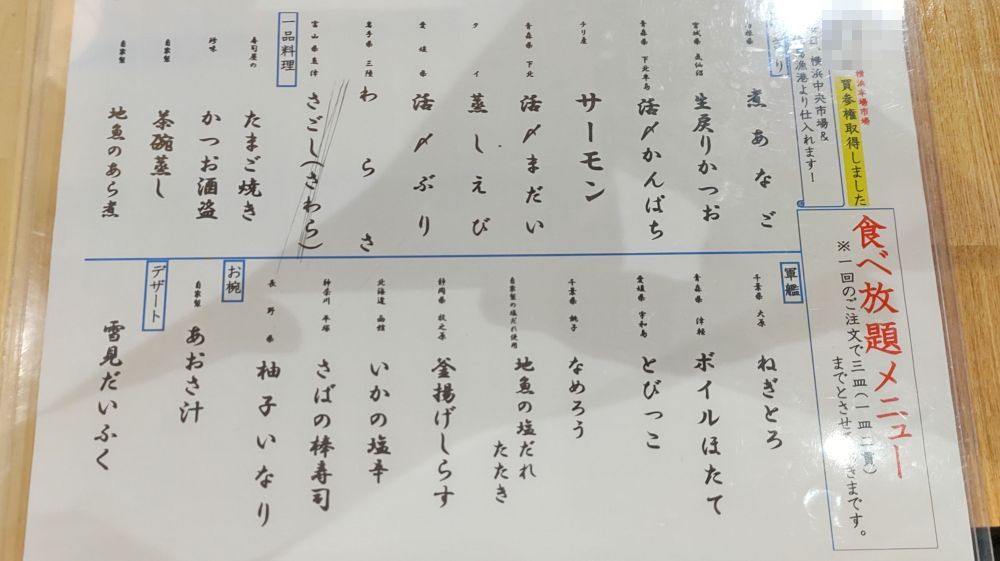 食べ放題メニュー
※一回のご注文で三皿(一皿二貫)
までとさせて
きまです。
横浜本場市場
買参権取得しました
横浜中央市場&
漁港より仕入れます!
り
煮あなご
宮城県 気仙沼
生戻りかつお
青森県 下北半島
活〆かんぱち
チリ産
サーモン
青森県 下北
活〆まだい
タイ
蒸しえび
愛媛県
活〆ぶり
岩手県 三陸
わらさ
富山県 魚津
さごし(さわら)
一品料理
寿司屋の
たまご焼き
珍味
かつお酒盗
自家製
茶碗蒸し
自家製
地魚のあら煮
軍艦
千葉県 大原
ねぎとろ
青森県 津軽
ボイルほたて
愛媛県 宇和島
とびっこ
千葉県 銚子
なめろう
自家製の塩だれ使用
地魚の塩だれ
たたき
静岡県 牧之原
釜揚げしらす
北海道 函館
いかの塩辛
神奈川 平塚
さばの棒寿司
長野県
柚子いなり
お椀
自家製
あおさ汁
デザート
雪見だいふく